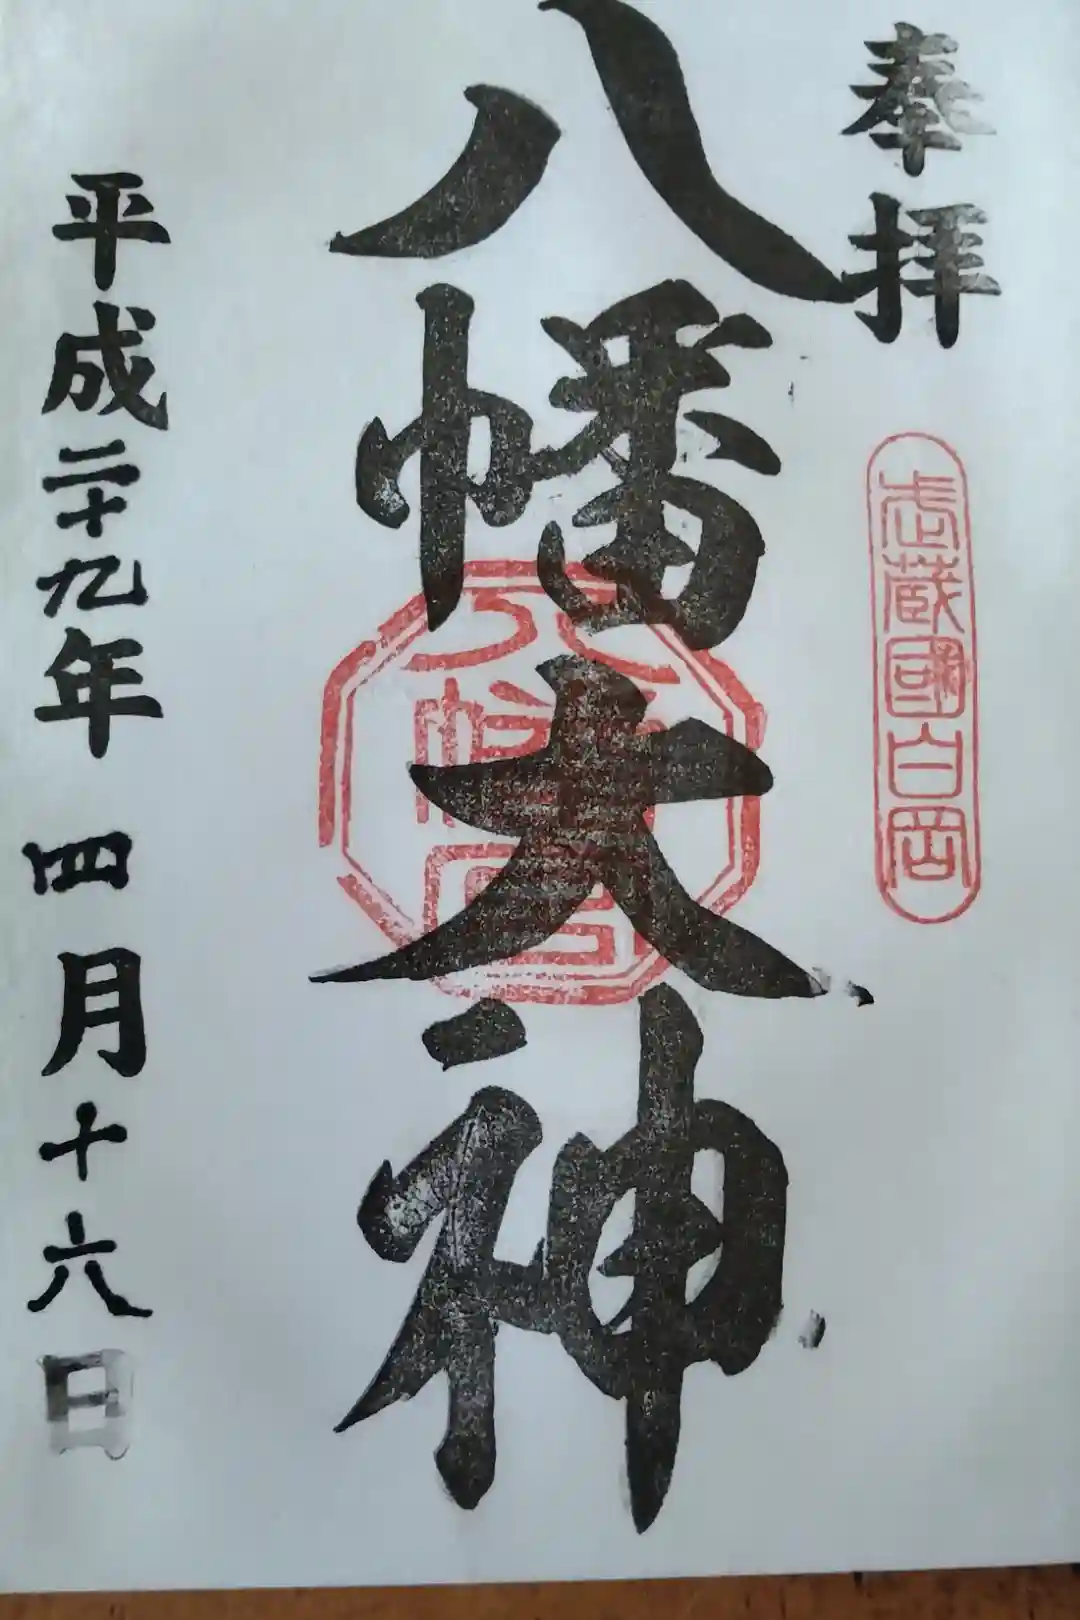 奉拝
武蔵國白岡
八幡大神
八幡宮
平成二十九年 四月十六日